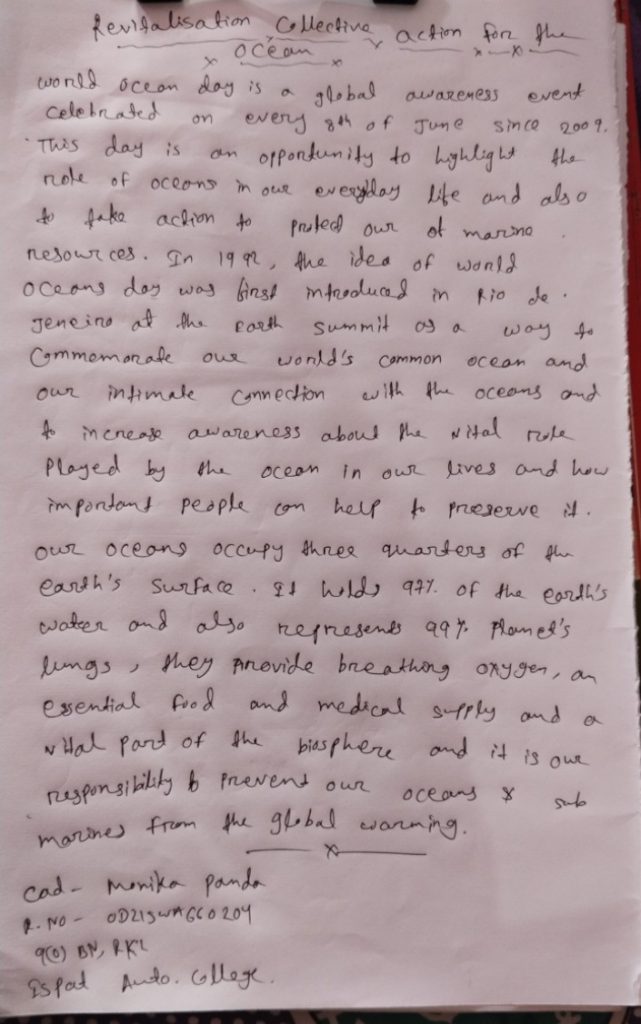 Revitalisation Collective action for the
ocean
world ocean day is a global awareness event
celebrated on every 8th of June since 2009.
This day is an opportunity to highlight the
role of oceans in our everyday life and also
to take action to protect our ot marine
resources. In 1992, the idea of world
oceans day was first introduced in Rio de
Jeneiro at the Earth Summit as a way to
Commemorate our world's common ocean and
our intimate connection with the oceans and
to increase awareness about the vital role
Played by the ocean in our lives and how
important people can help to preserve it.
our oceans occupy three quarters of the
earth's surface. It holds 97% of the earth's
water and also represents 99% Planet's
lungs, they provide breathing oxygen, an
essential food and medical supply and a
vital part of the biosphere and it is our
responsibility to prevent our oceans & sub
marines from the global warming.
Cad- Monika Panda
R. NO - OD21SWA660204
9(O) BN, RKL
Ispat Auto. College.